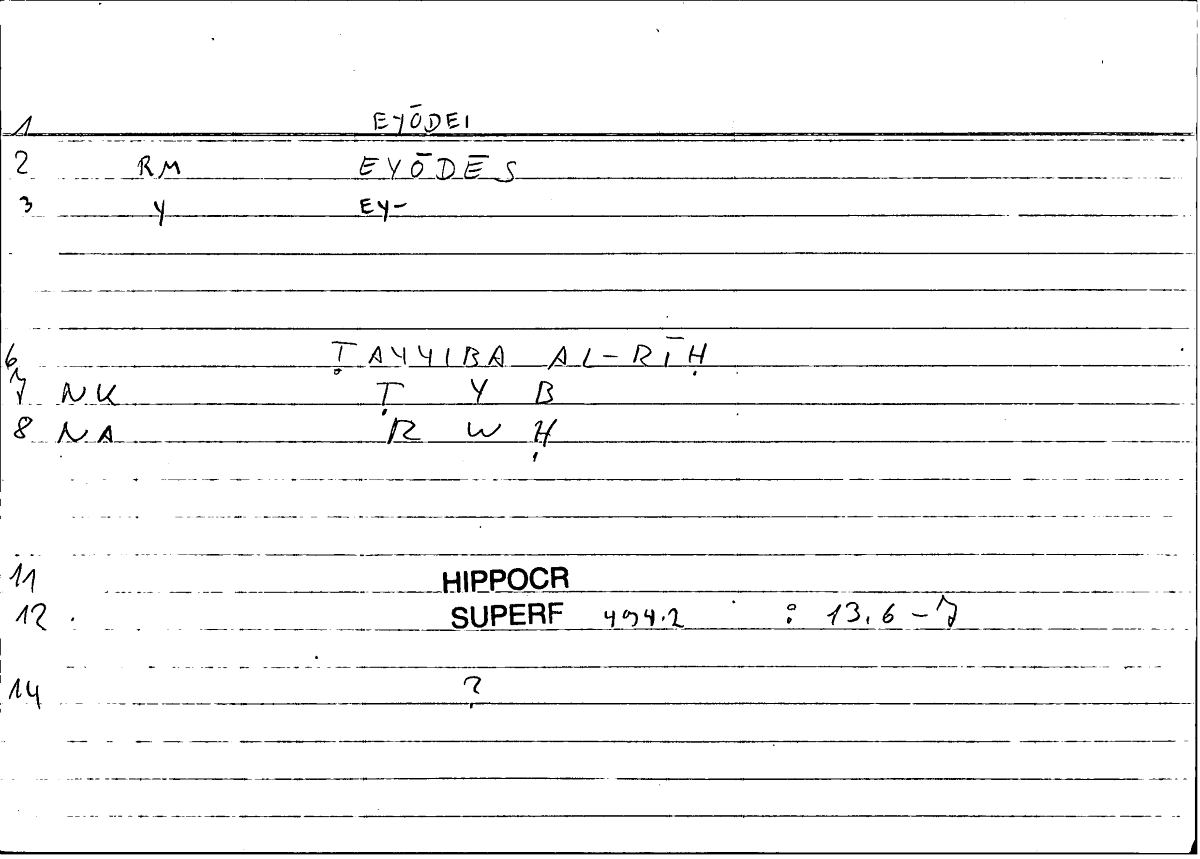 1 EYŌDEI
2 RM EYŌDĒS
3 Y EY-
6 ṬAYYIBA AL-RĪḤ
7 NK Ṭ Y B
8 NA R W Ḥ
11 HIPPOCR
12 SUPERF 494.2 : 13.6-7
14 ?